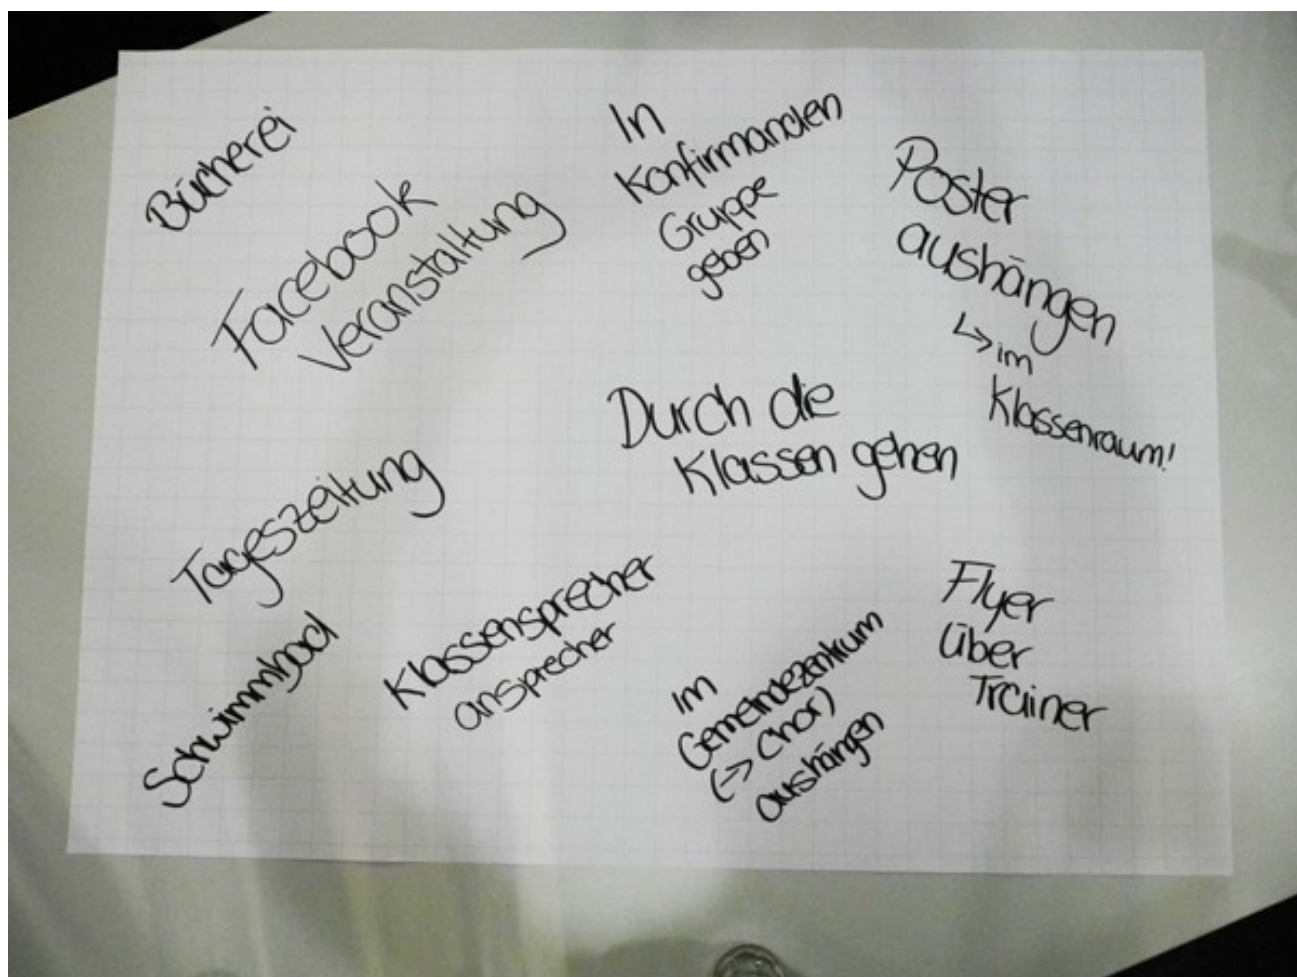 Bücherei
Facebook
Veranstaltung
In
Konfirmanden
Gruppe
geben
Poster
aushängen
↳ im
Klassenraum!
Durch die
Klassen gehen
Tageszeitung
Schwimmbad
Klassensprecher
ansprecher
im
Gemeindezentrum
(-> Chor)
aushängen
Flyer
über
Trainer